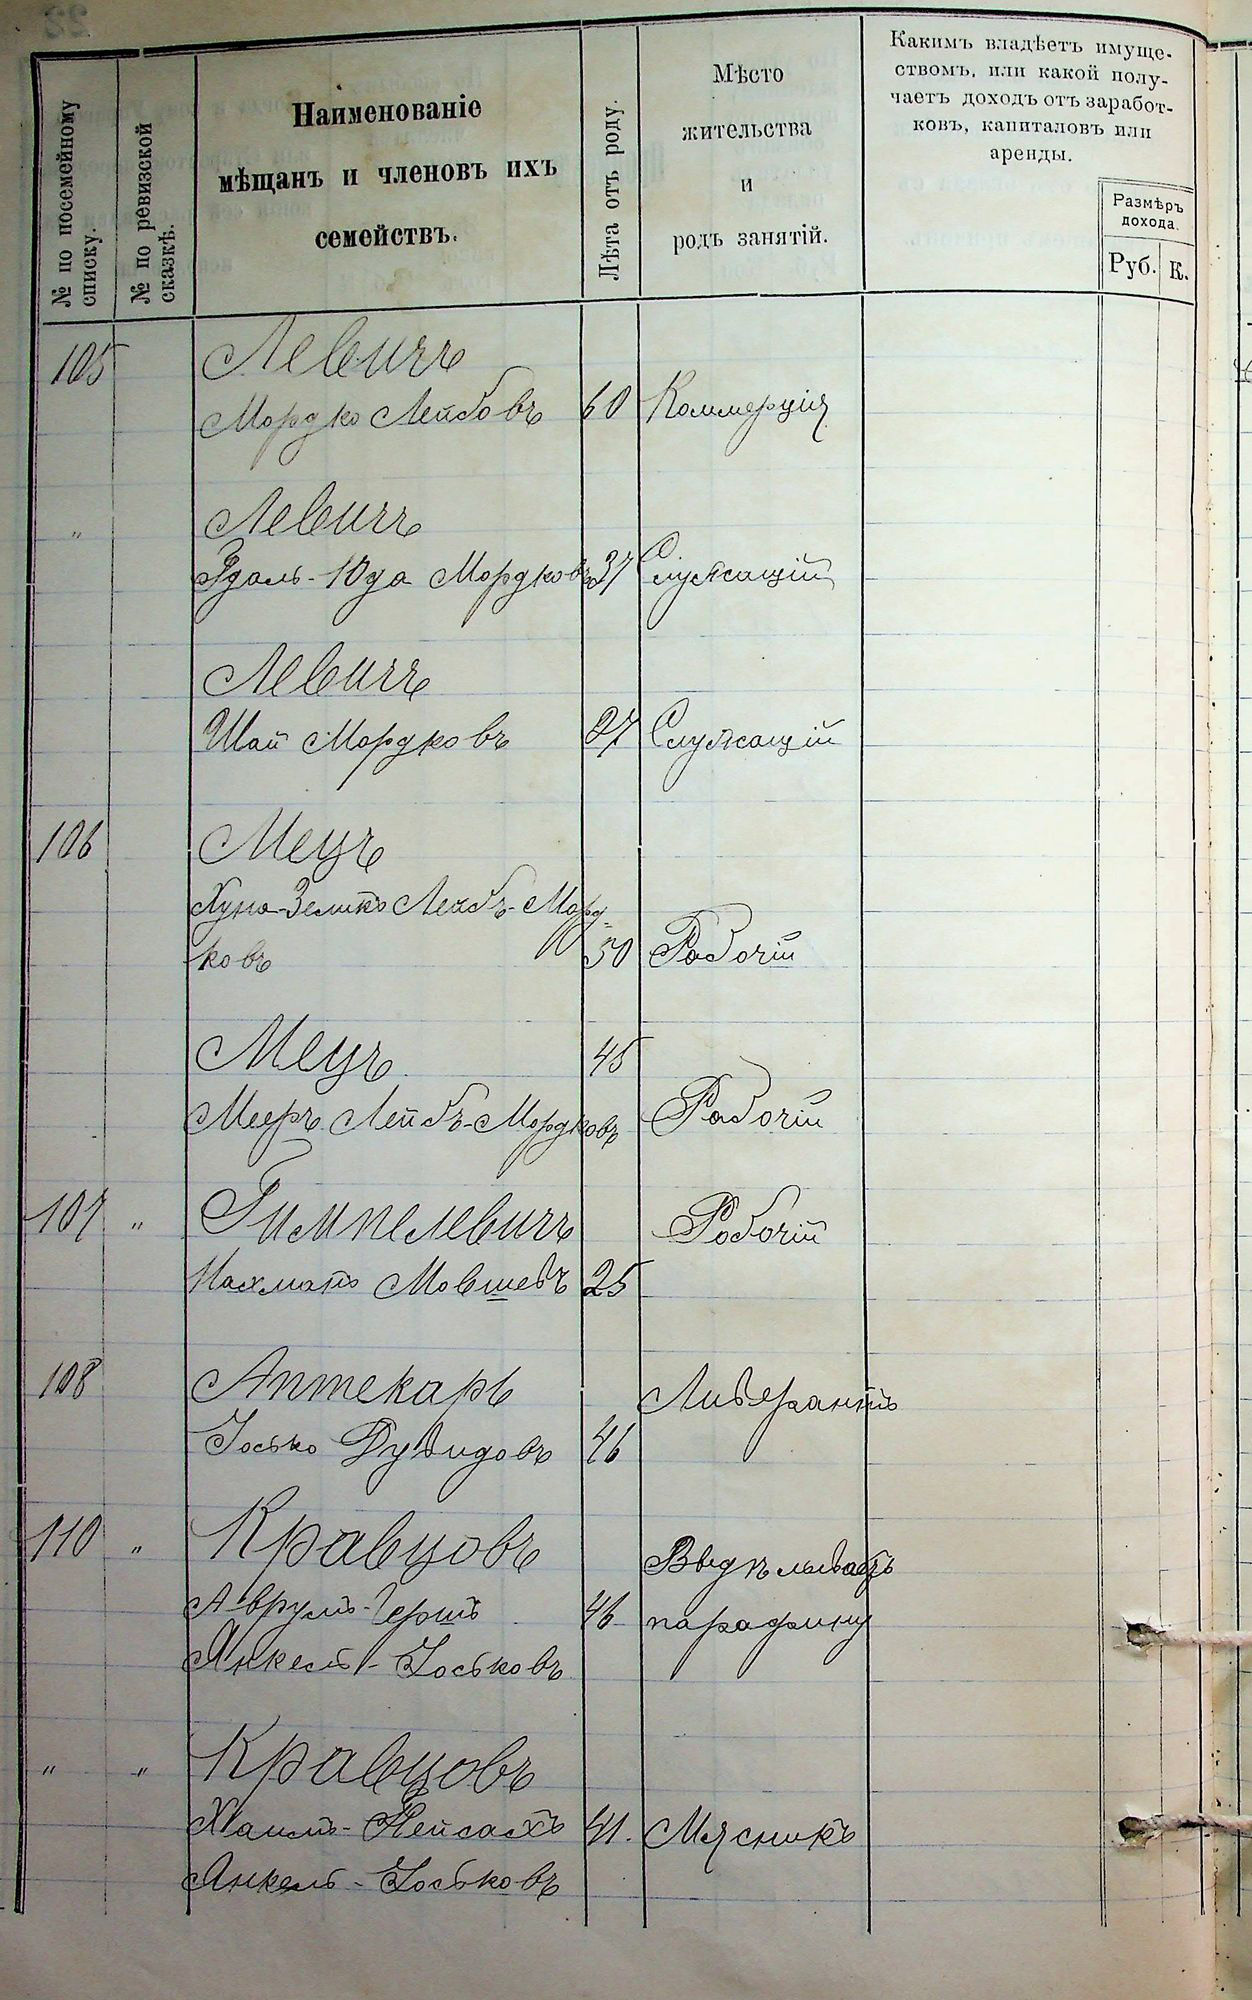 № по посемейному
списку.
№ по ревизской
сказкѣ.
Наименованіе
мѣщанъ и членовъ ихъ
семействъ.
Лѣта отъ роду.
Мѣсто
жительства
и
родъ занятій.
Какимъ владѣетъ имуще-
ствомъ, или какой полу-
чаетъ доходъ отъ заработ-
ковъ, капиталовъ или
аренды.
Размѣръ
дохода.
Руб. К.
105 Левичъ
Мордко Лейбовъ 60 Коммерція
" Левичъ
Эдаль-Юда Мордковъ 37 Служащій
Левичъ
Шаи Мордковъ 27 Служащій
106 Мецъ
Хуна-Зеликъ Лейбъ-Морд-
ковъ 50 Рабочій
Мецъ 45
Мееръ Лейбъ-Мордковъ Рабочій
107 " Гимпелевичъ Рабочій
Нахманъ Мовшевъ 25
108 Аптекарь Ливерантъ
Іосько Дувидовъ 46
110 " Кравцовъ Выдѣлываетъ
Аврумъ-Гершъ 46 парафину
Янкель-Іоськовъ
" " Кравцовъ
Хаимъ-Пейсахъ 41. Мясникъ
Янкель-Іоськовъ